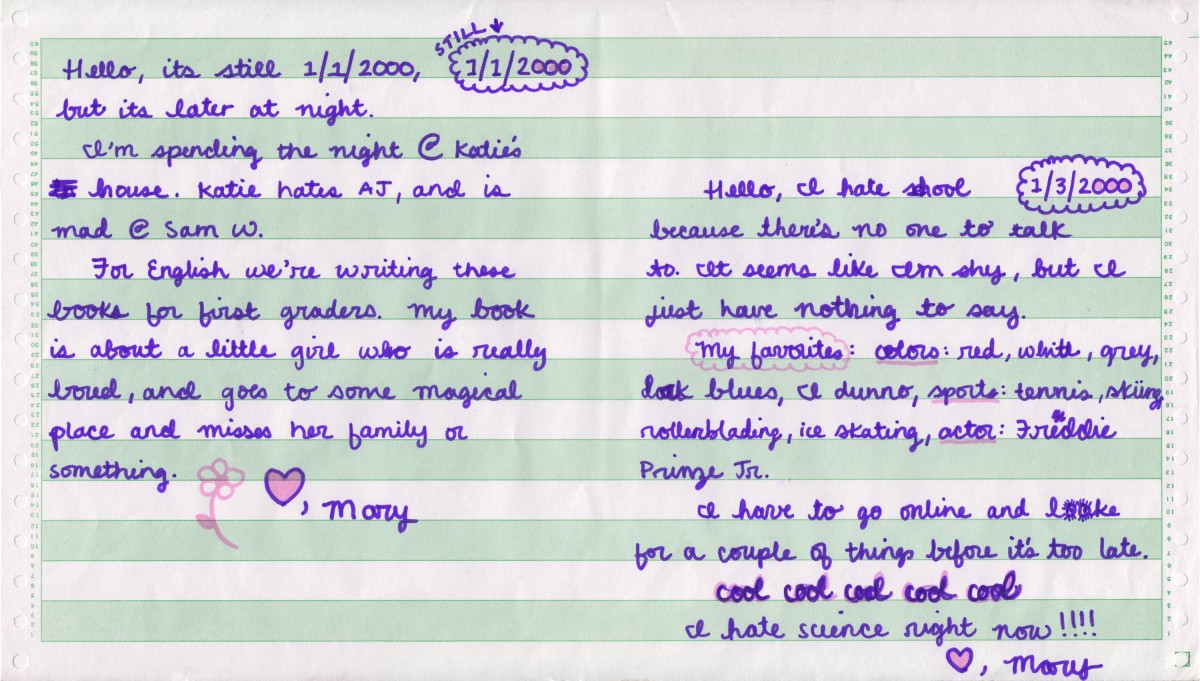 STILL
Hello, its still 1/1/2000, 1/1/2000
but its later at night.
I'm spending the night @ Katie's
house. Katie hates AJ, and is
mad @ Sam W.
For English we're writing these
books for first graders. my book
is about a little girl who is really
bored, and goes to some magical
place and misses her family or
something.
♥, Mary
Hello, I hate school 1/3/2000
because there's no one to talk
to. It seems like I'm shy, but I
just have nothing to say.
My favorites: colors: red, white, grey,
dark blues, I dunno, sports: tennis, skiing,
rollerblading, ice skating, actor: Freddie
Prinze Jr.
I have to go online and l ke
for a couple of things before it's too late.
cool cool cool cool cool
I hate science right now!!!!
♥, Mary